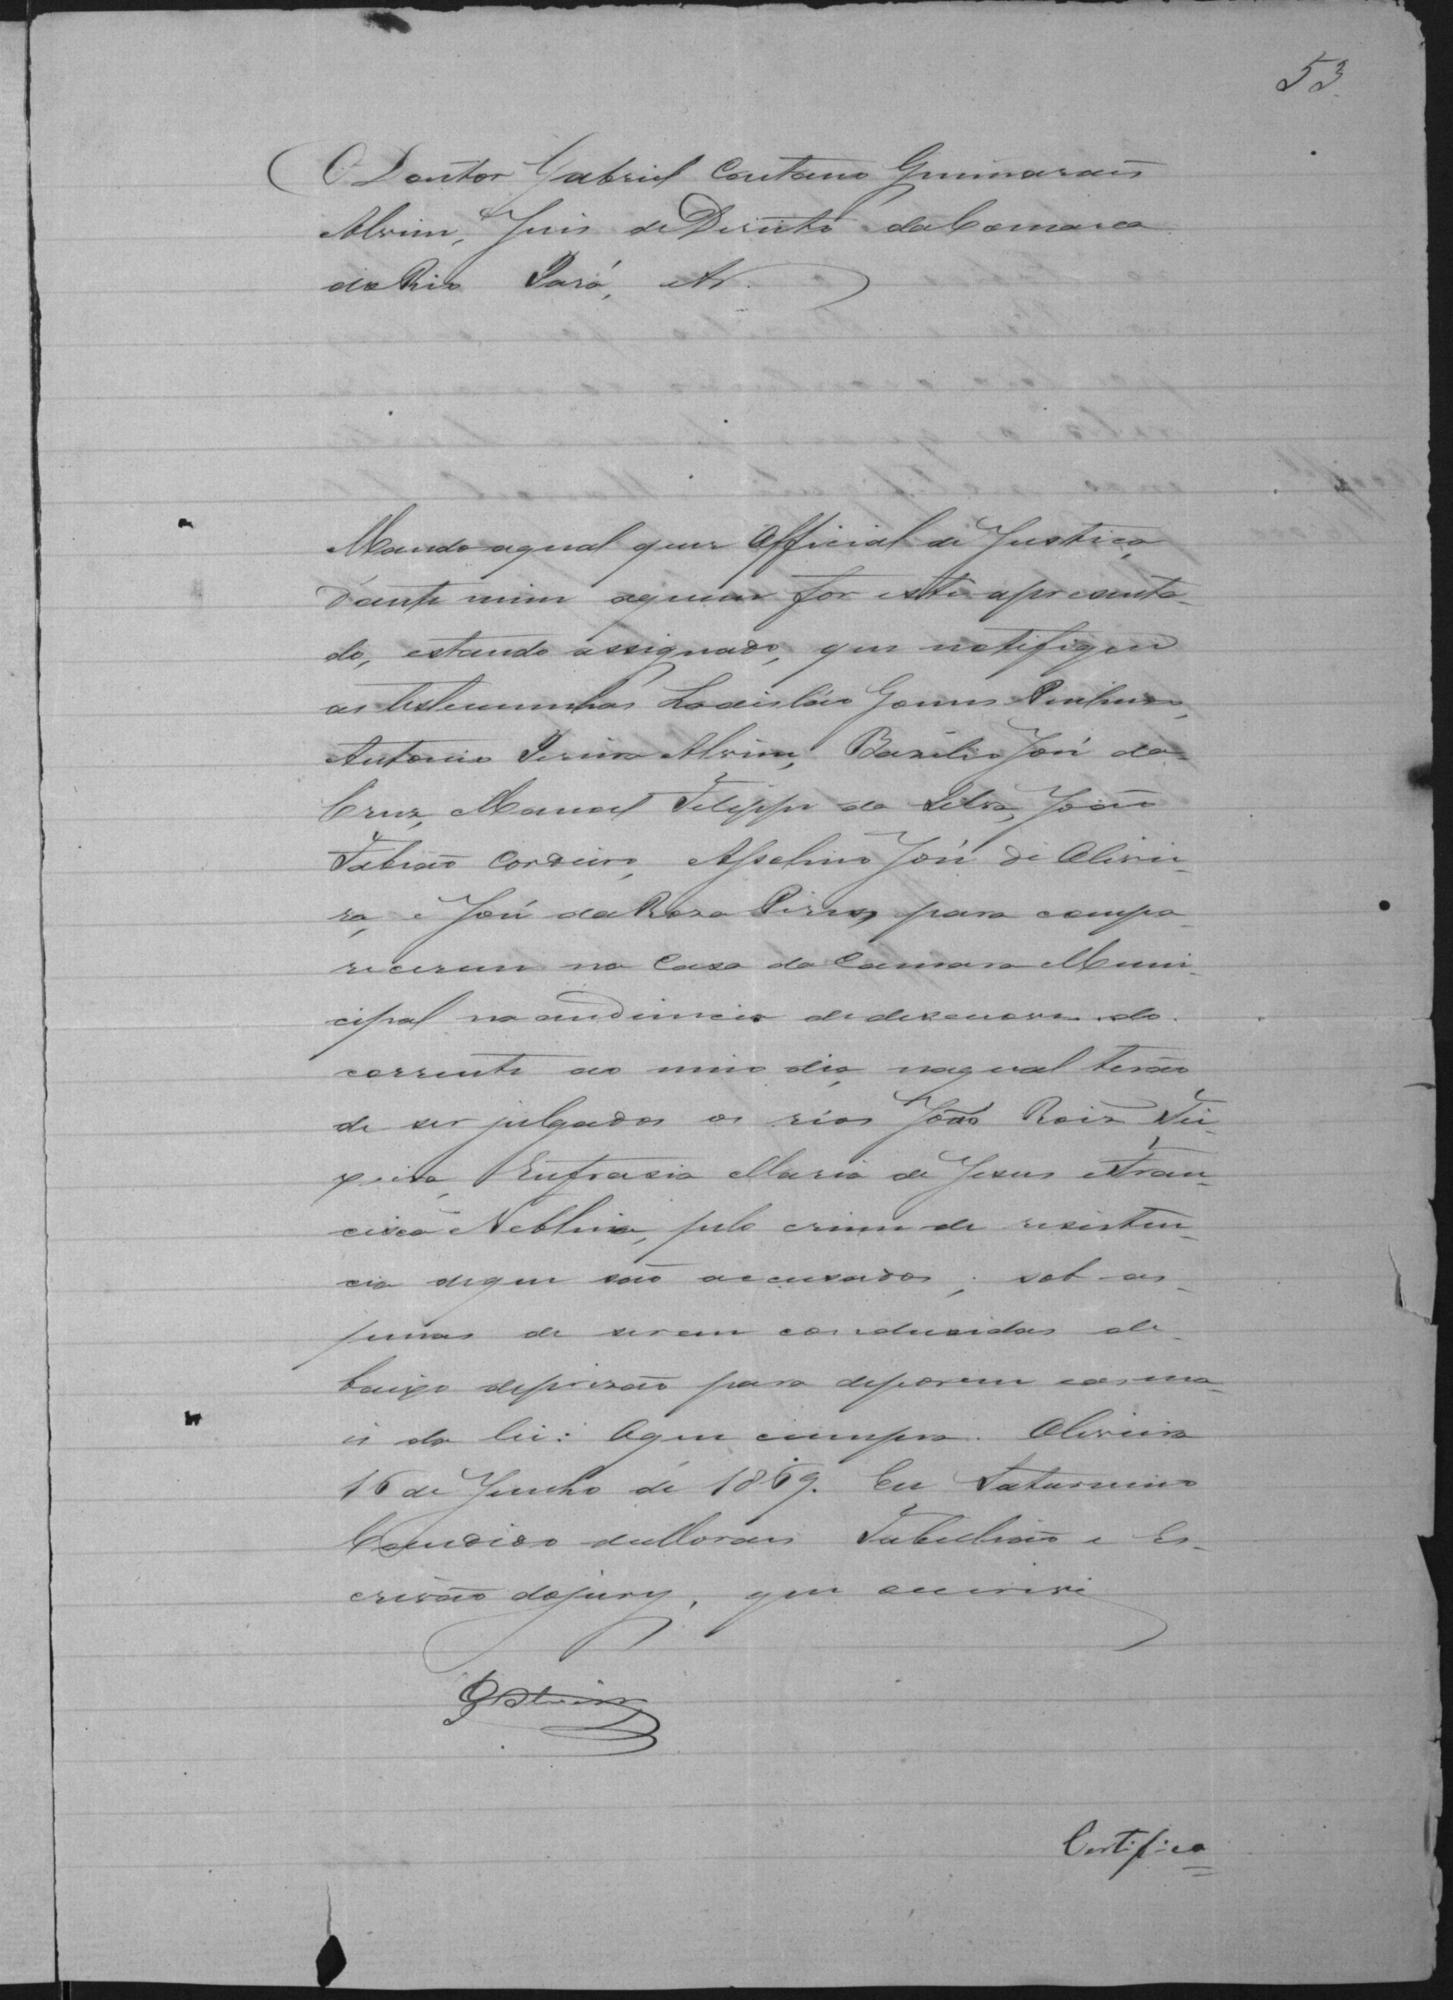 53
O Doutor Gabriel Caetano Guimarães
Alvim, Juis de Direito da Comarca
do Rio Pará, etc.
Mando aqual quer Official de Justiça
d'ante mim aquem for este apresenta-
do, estando assignado, que notifique
as testemunhas Ladisláo Gomes Pinheiro,
Antonio Pereira Alvim, Bazilio José da
Cruz, Manoel Filippe da Silva, João
Fabião Cordeiro, Asselino José de Olivei-
ra, e José da Roza Pires, para compa-
recerem na Casa da Camara Muni-
cipal na audiencia de dezenove do
corrente ao meio dia, naqual terão
de ser julgados os réos João Roiz Tei-
xeira, Eufrasia Maria de Jesus e Fran-
cisco Neblina, pelo crime de resisten-
cia deque são accusados; sob as
penas de serem condusidas de-
baixo deprizão para deporem e as ma-
is da lei: Oque cumpra. Oliveira
16 de Junho de 1869. Eu Saturnino
Candido de Moraes Tabellião e Es-
crivão do jury, que escrivi
GAlvim
Certifico